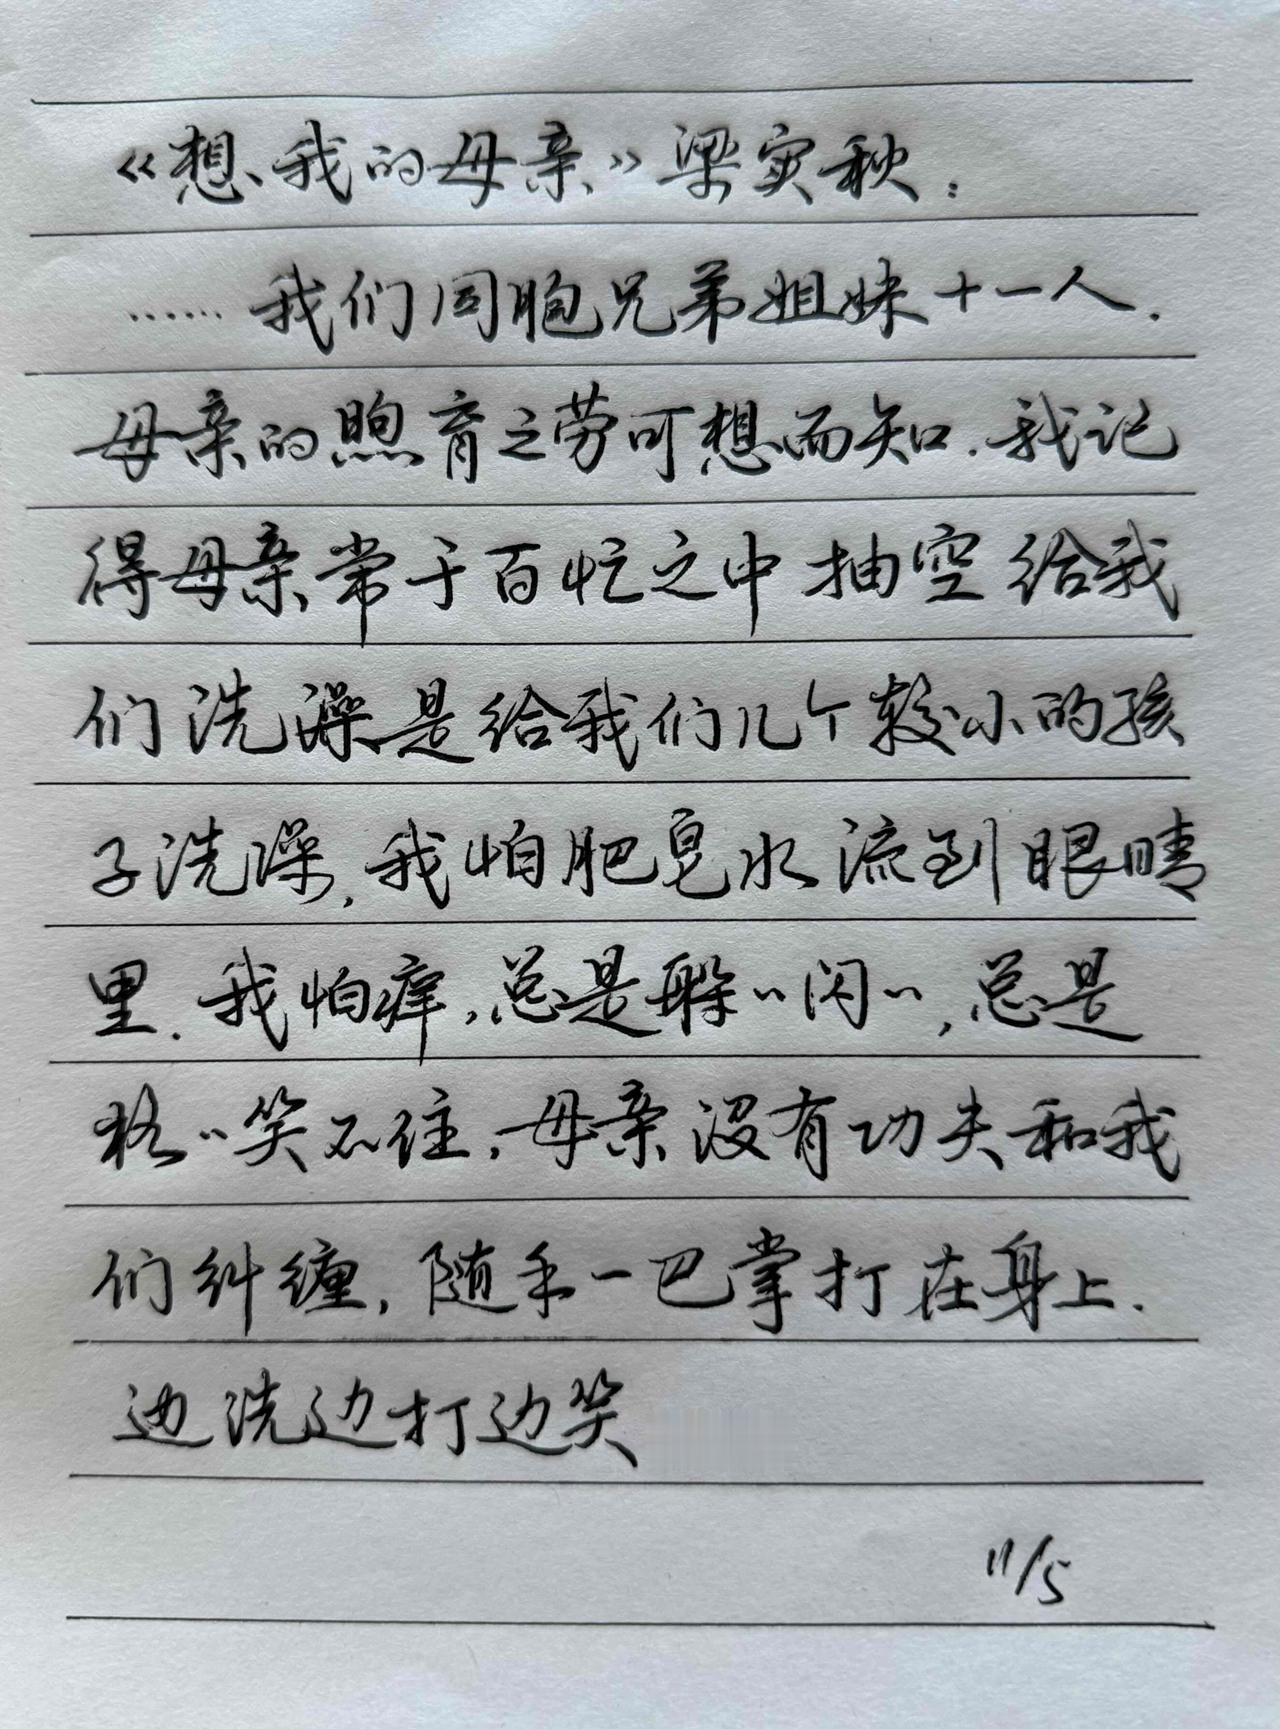 《想我的母亲》梁实秋：
……我们同胞兄弟姐妹十一人.
母亲的煦育之劳可想而知.我记
得母亲常于百忙之中抽空给我
们洗澡是给我们几个较小的孩
子洗澡,我怕肥皂水流到眼睛
里.我怕痒,总是躲〃闪〃,总是
格〃笑不住,母亲没有功夫和我
们纠缠,随手一巴掌打在身上.
边洗边打边笑
11/5